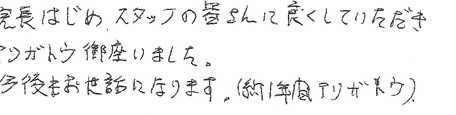 院長はじめ、スタッフの皆さんに良くしていただき
アリガトウ御座いました。
今後もお世話になります。(約1年間アリガトウ)